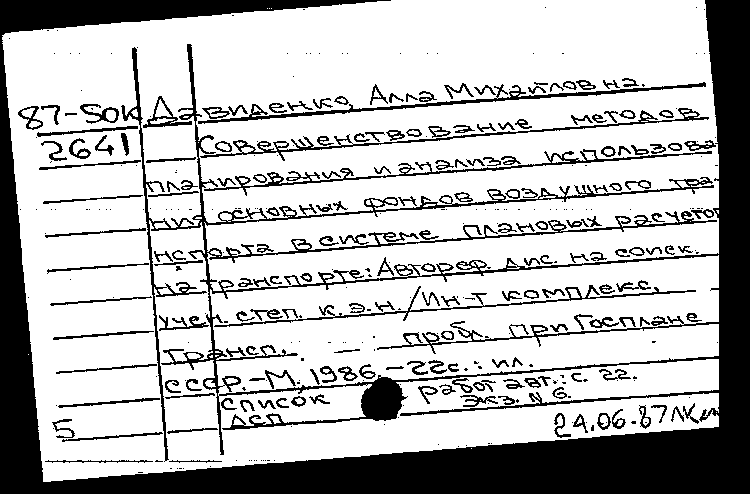 87-50к Давиденко, Алла Михайловна.
2641 Совершенствование методов
планирования и анализа использова
ния основных фондов воздушного тра-
нспорта в системе плановых расчетов
на транспорте: Автореф. дис. на соиск.
учен. степ. к.э.н. / Ин-т комплекс.
трансп. — пробл. при Госплане
СССР.-М., 1986.-22с.: ил.
Список работ авт.: с. 22.
ДСП Экз. N 6
5 24.06.87